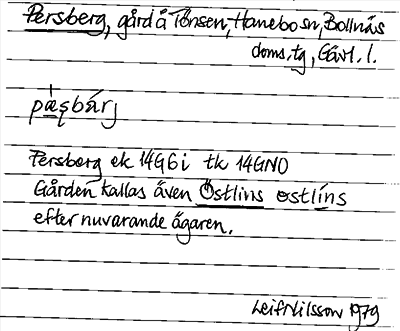 Persberg, gård å Tönsen, Hanebo sn, Bollnäs
doms.tg, Gävl. l.
pæ̀şbárj
Persberg ek 14G6i tk 14GNO
Gården kallas även Östlins ostlíns
efter nuvarande ägaren.
Leif Nilsson 1979